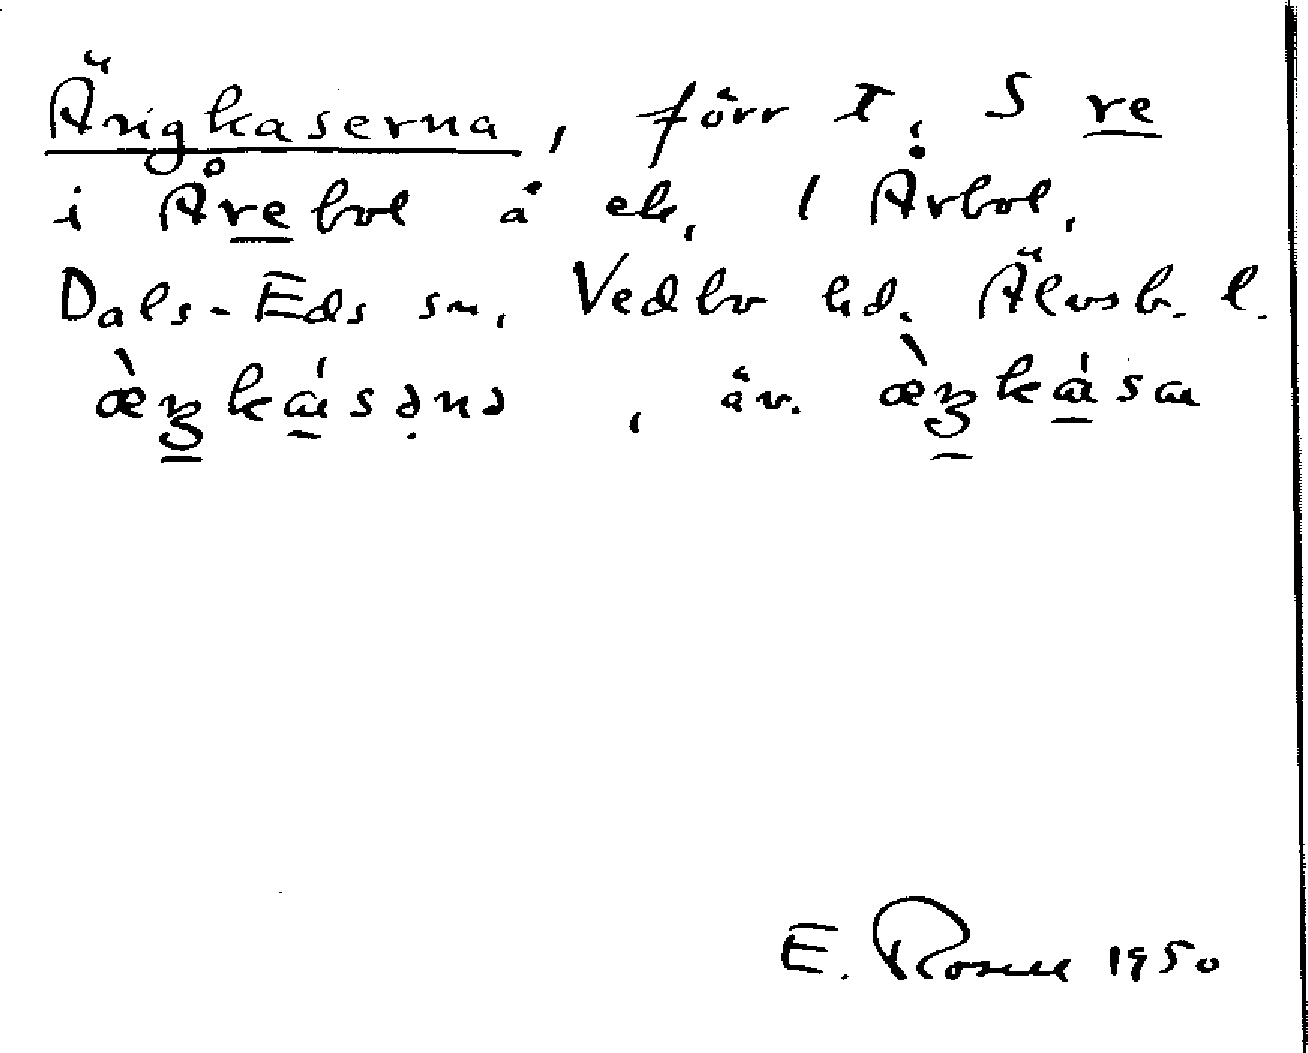 Ängkaserna, förr T, S re
i Årebol å ek, 1 Årbol,
Dals-Eds sn, Vedbo hd. Älvsb. l.
æ̀ŋkásənə, äv. æ̀ŋkása
E. Rosell 1950